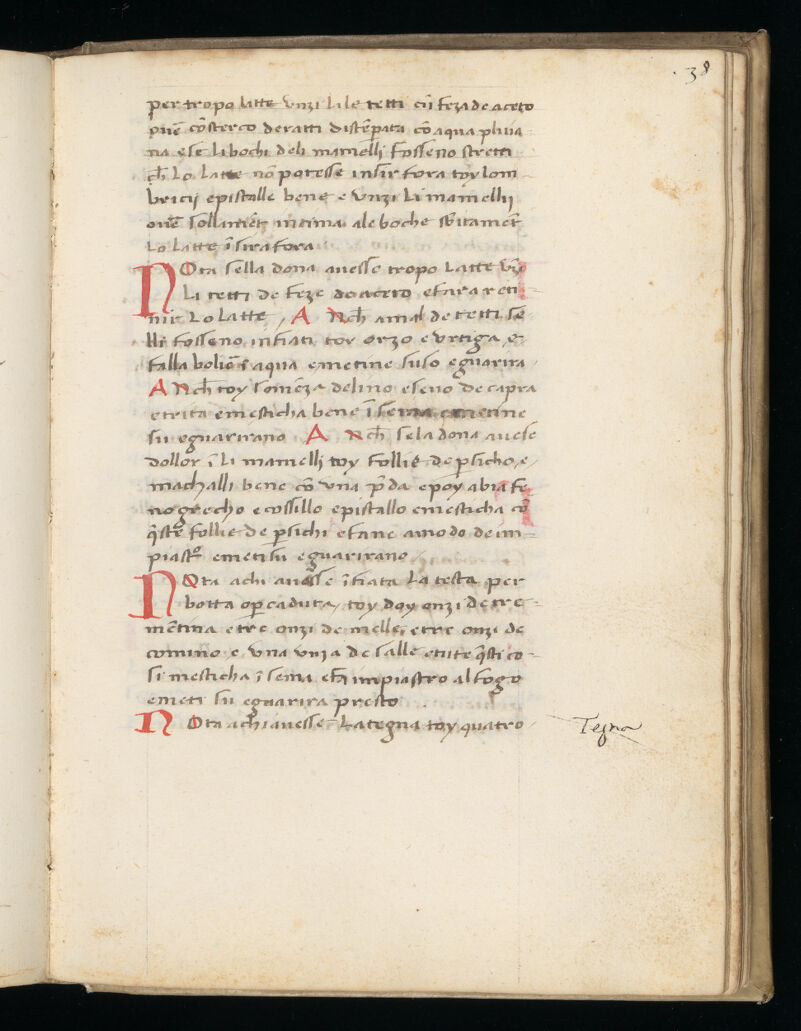 38
per tropo latte unzi li le tetti cū feza de aceto
ouē cō sterco de ratti distēperata cō aqua pluia
na e se li bochi deli mamelli fosseno stretti
ch̄ lo latte nō potesse insir fora toy lom
bricij epistalle bene e unzi li mamellij
ouē sollamēt intima ale boche sbitamēt
lo latte īsira fora
NOta sella dona auesse tropo latte
li tetti de feze de aceto e fara reti
nir lo latte, A Nch̄ a mal de tetti se
lli fosseno infiati toy orzo e urtiga, e
falla boliē ī aqua e metine suso e guarira
ANch̄ toy somēza de lino e seno de capra
e trita e mesticha bene ī sema e metine
su e guarirano A Nch̄ se la dona auese
dollor ī li mamellj toy follie de psicho, e
machalli bene cō una p̄da e poy abia fe
nogrecho e cossillo epistallo e mesticha cō
q̄ste follie de psichi e fane a modo de im
piastº e meti su e guarirano
NOta a chi auesse īfiata la testa per
botta o p caduta, toy doy onzi de tre
mētina e tre onzi de melle, e tre onzi de
comino e una unza de salle e tute q̄sti co
si mesticha ī sema e fā impiastro al fogo
e meti su e guarira presto
NOta a chi auesse la tegna toy quatro
Tegna